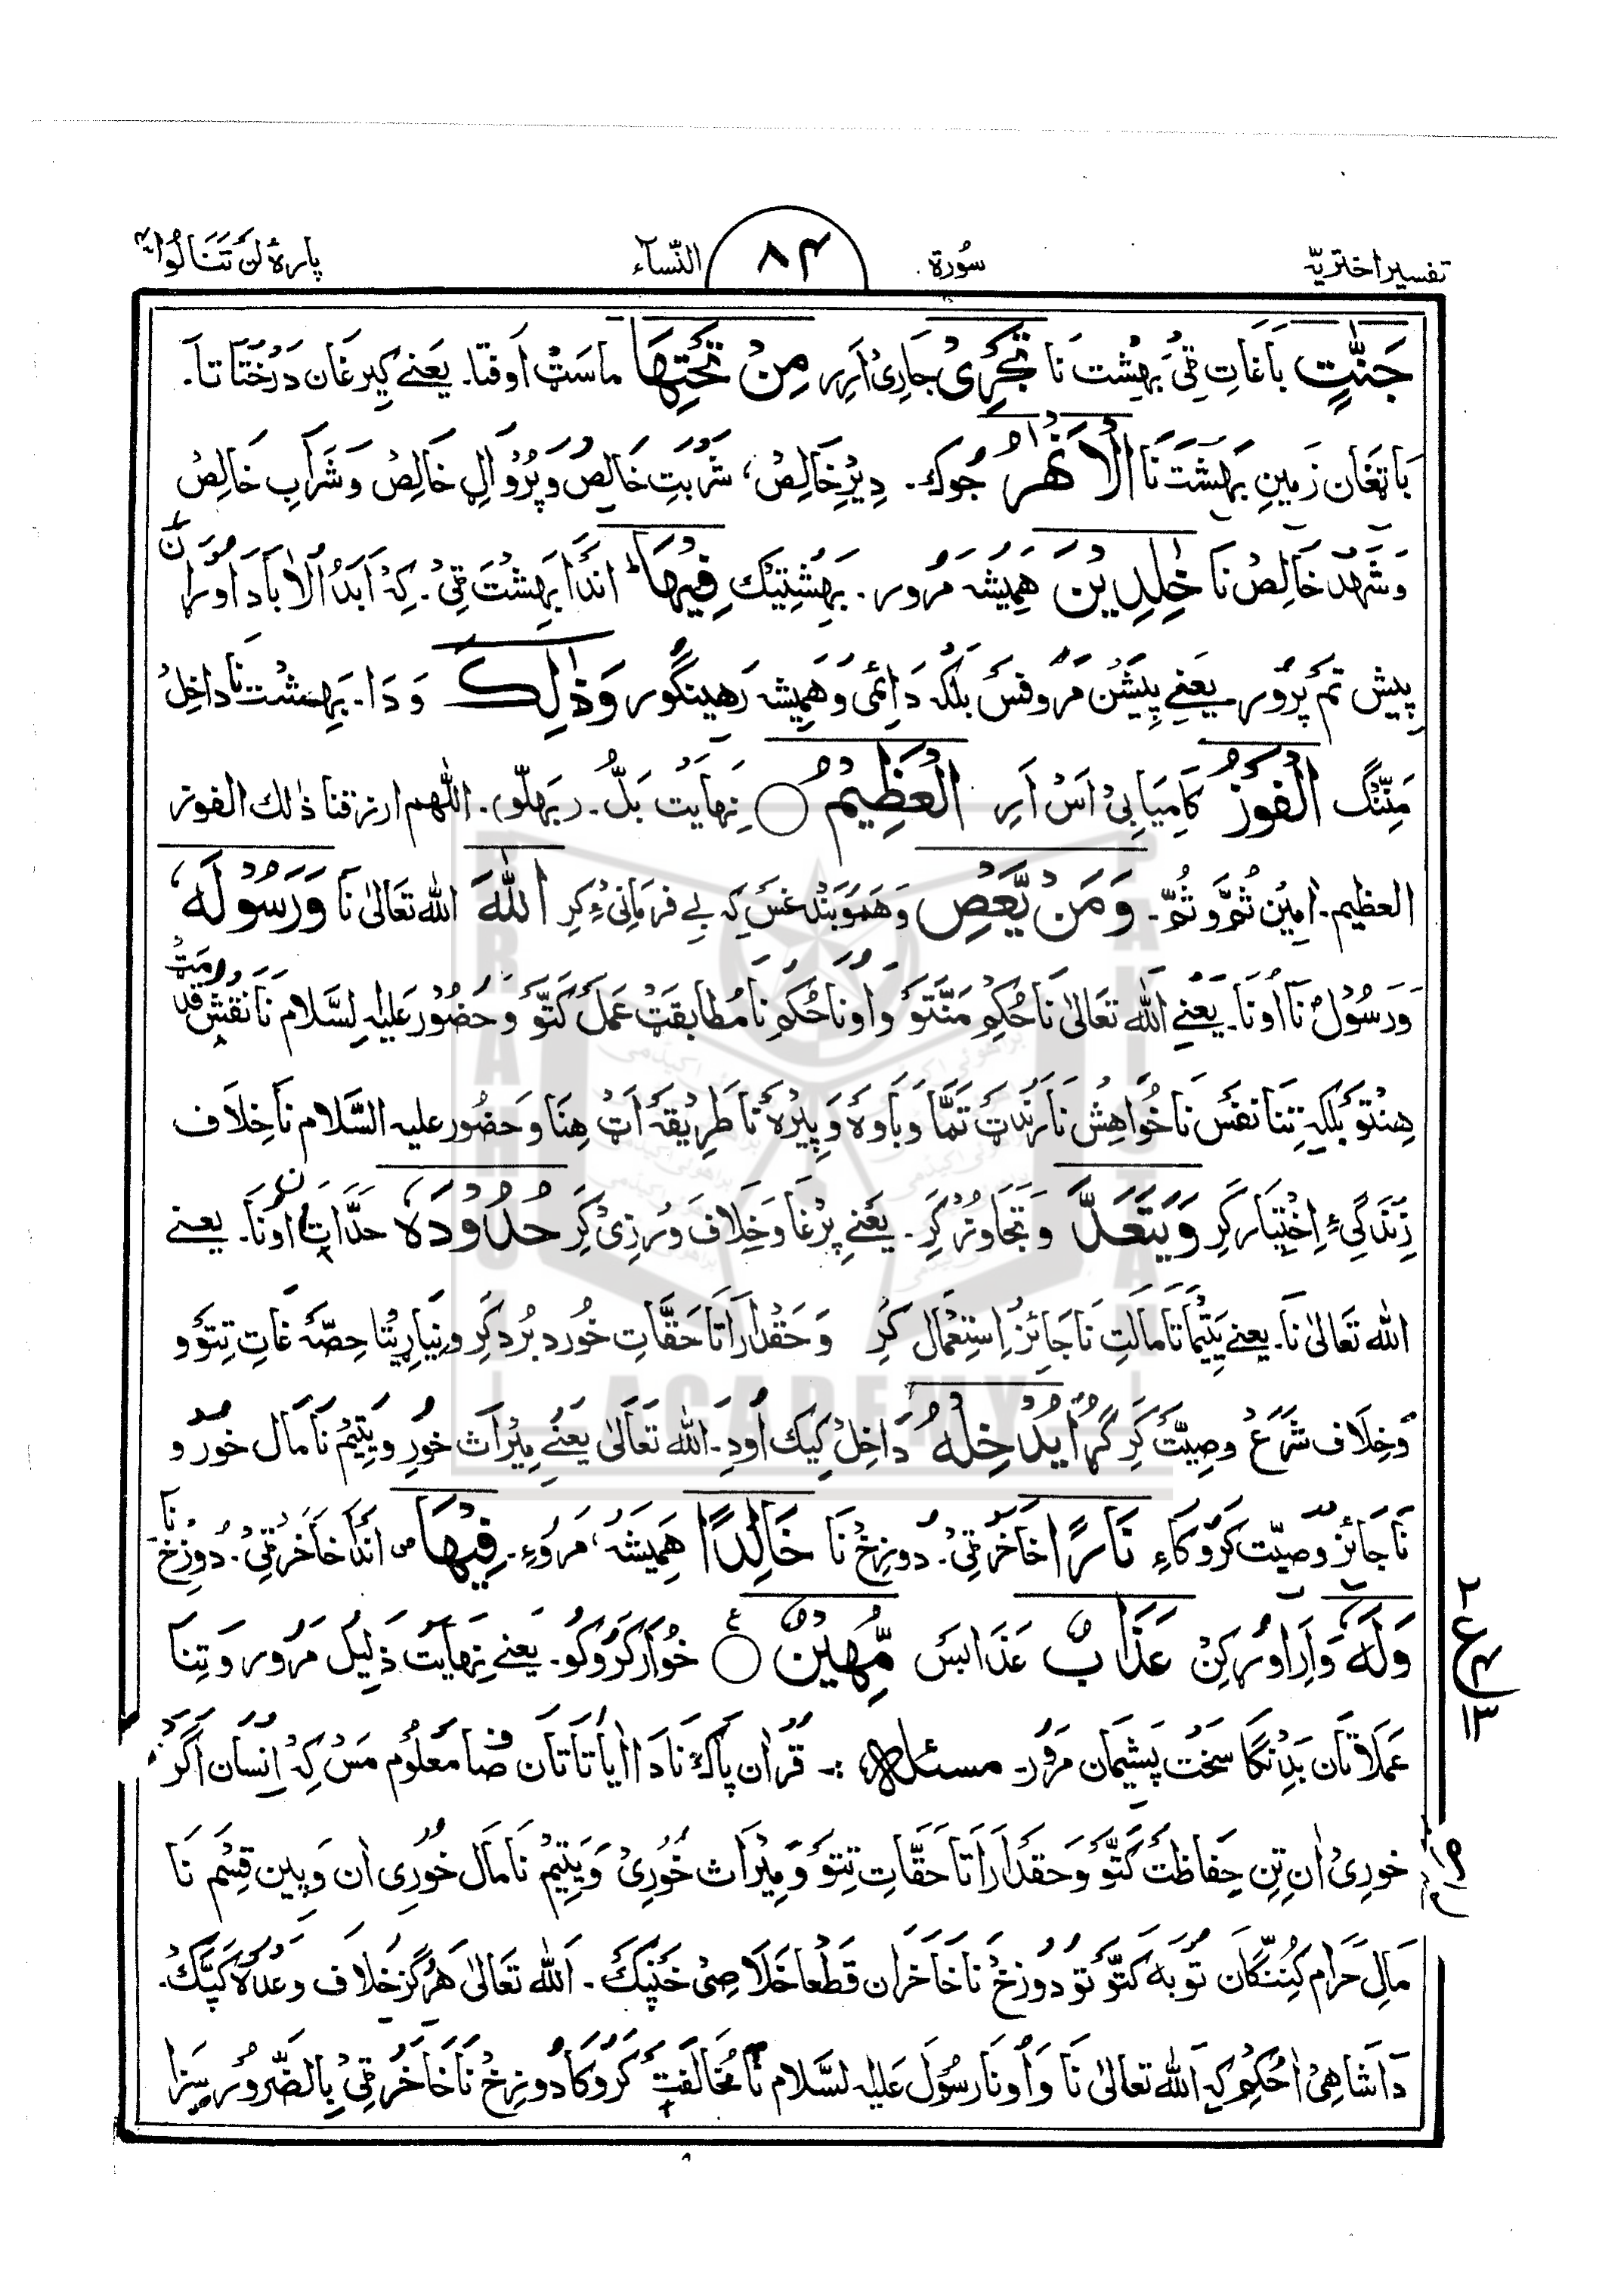 تفسیر اختریہ سُورۃ ۸۴ النّسآء پارہ لَنْ تَنَالُوا ۴
جَنّٰتٍ بَاغَاتِ ٹی بَہِشت نَا تَجْرِیْ جَارِی اَرِر مِنْ تَحْتِہَا ماسَٹ اَوفتا۔ یَعنے کیرغان دَرَختَاتا۔
بَاتِغان زَمِینِ بَہِشتَ نَا الْاَنْہٰرُ جُوک۔ دِیرِ خَالِصْ، شَربتِ خَالِصْ وَپُرُوَالِ خَالِصْ وَشَرَابِ خَالِصْ
وَشَہَدِ خَالِصْ نَا خٰلِدِیْنَ ہَمِیشہ مَرور۔ بَہِشتِیک فِیْہَا ط اندَا بَہِشت ٹی۔ کِہ اَبَدُ الْاٰبَاد اَوْرَان
پِیش تم پَرور۔ یعنے پِیشَن مَروفس بلکہ دَائمی وَہَمِیشہ رَہینگور وَذٰلِکَ وَدَا۔ بَہِشت نَا داخِل
مَنِّنگ الْفَوْزُ کَامِیَابِی اَس اَرِ الْعَظِیْمُ ○ نِہایت بَلُّ۔ (بَہلّو)۔ اللّٰہم ارزقنا ذٰلک الفوز
العظیم۔ اٰمِین ثُمَّ وَثُمَّ۔ وَمَنْ یَّعْصِ وَہَمو بَندغَس کِہ بے فرمَانیءِ کرِ اللّٰہَ اللّٰہ تَعَالیٰ نَا وَرَسُوْلَہٗ
وَرَسُوْلُ نَا اُونَا۔ یَعْنے اللّٰہ تَعَالیٰ نَا حُکِم مَنَّتَو وَاونا حُکم نَا مُطابِقَٹ عَمل کَتَّو وَحَضُور عَلیہِ السَّلام نَا نَقش قدمَٹ
ہِنتَو بَلکہ تِنَا نَفَس نَا خُواہِش نَا رَندَٹ تَمَّا وَبَاوہ وَپِیرَہ نَا طَرِیقہ اَٹ ہِنَا وَحَضُور علیہ السَّلام نَا خِلَاف
زِندَگیءِ اِخْتِیَار کَرِ وَیَتَعَدَّ وَتَجَاوز کَرِ۔ یَعنے پِرغَا وَخِلَاف وَرزِی کَرِ حُدُوْدَہٗ حَدَّاتِ اُونَا۔ یعنے
اللّٰہ تَعَالیٰ نَا۔ یعنے یَتِیمَا تَا مَالتِ نَاجَائز اِستِعْمَال کَرِ وَحَقدَارَاتَا حَقَّاتِ خُورد بُرد کَرِ وَنِیَارِیتَا حِصّہ غَاتِ تِتَو وَ
وَخِلَاف شَرَع وصِیَّت کَرِ گُڑا یُدْخِلْہُ دَاخِل کِیک اَودِ۔ اللّٰہ تَعَالیٰ یَعنے مِیْرَاث خورِ وَیَتِیْم نَا مَال خورَ و
نَاجَائز وصِیّت کَروکَاءِ نَارًا خَاخَر ٹی۔ دوزِخ نَا خَالِدًا ہَمِیشَہ، مَروءِ۔ فِیْہَا ص اَندَا خَاخَر ٹی۔ دُوزِخ نَا
وَلَہٗ وَاِرِ اَور کِن عَذَابٌ عَذَابَس مُّہِیْنٌ ○ ع خُوار کَروکو۔ یعنے نِہایَت ذلِیل مَرور وَتِنَا
عَمَلاتَان بَدِنگا سخت پَشِیمان مَرور۔ مسئلہ :۔ قُرآن پاک نَا دَا اٰیاتَاتَان صفا مَعلُوم مَس کِہ اِنسَان اَگر
خورِی اٰن تِن حِفاظت کَتَّو وَحَقدَارَاتَا حَقَّاتِ تِتَو وَمِیْرَاث خُوری وَیَتِیْم نَا مَال خُوری اٰن وَپِین قِسْم نَا
مَالِ حَرام کُنِنگان تَوبَہ کَتَّو تو دوزخ نَا خَاخَران قَطعا خَلَاصِی خَنپک۔ اَللّٰہ تَعَالیٰ ہَرگز خِلَاف وَعْدَہ کَپَک۔
دَا شَاہِی حُکِم کِہ اَللّٰہ تعالیٰ نَا وَاُونَا رَسُول عَلیہِ السَّلام نَا مُخَالَفت کَروکَا دوزِخ نَا خَاخَر ٹی بِالضَّرور سَزا